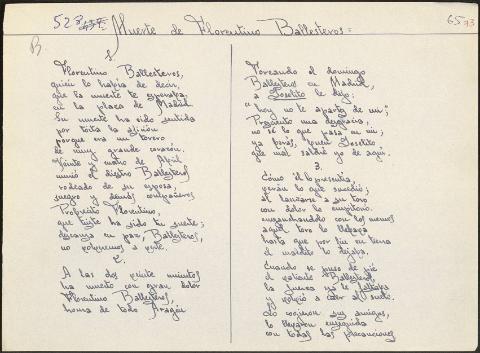 523
65 73
B.
Muerte de Florentino Ballesteros =
1.
Florentino Ballesteros,
quien lo había de decir,
que tu muerte te esperaba
en la plaza de Madrid
Su muerte ha sido sentida
por toda la afición
porque era un torero
de muy grande corazón.
Veinte y cuatro de Abril
murió el diestro Ballesteros
rodeado de su esposa,
suegro y demás compañeros
Florentino,
que triste ha sido tu suerte;
descanza en paz, Ballesteros,
no volveremos a verte.
2.
A las dos veinte minutos
ha muerto con gran dolor
Florentino Ballesteros,
honra de todo Aragón
Toreando el domingo
Ballesteros en Madrid,
a Joselito le dijo:
"hoy no te apartes de mi;"
Presiento una desgracia,
no sé lo que pasa en mi;
ya verás, buen Joselito
que mal saldré yo de aquí.
3.
Cómo él lo presentía
verán lo que sucedió;
al lanzarse a su toro
con dolor lo empitonó.
enganchandolo con los
aquel toro lo llevaba
hasta que por fin en tierra
el maldito lo dejaba.
Cuando se puso de pié
el valiente Ballesteros,
la fuerza ya le faltaba
y volvió a caer al suelo.
Lo cogieron sus amigos,
lo llevaron enseguida
con todas las precauciones